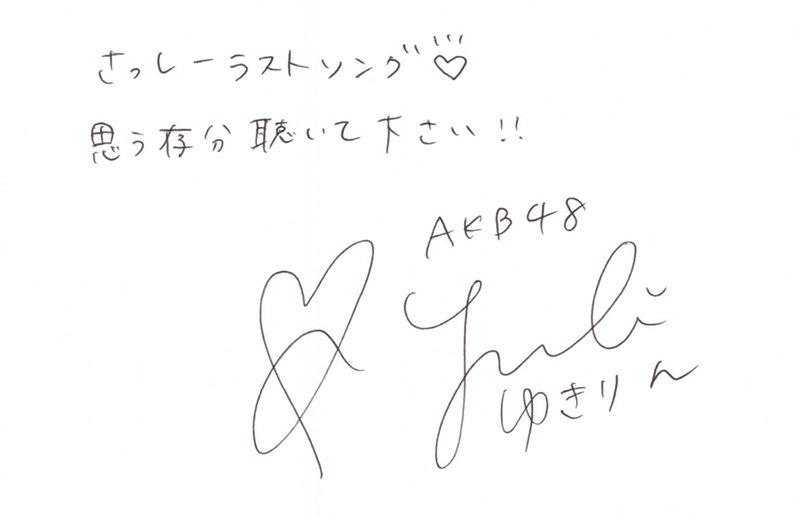 さっしーラストソング♡
思う存分聴いて下さい!!
AKB48
Yuki
ゆきりん